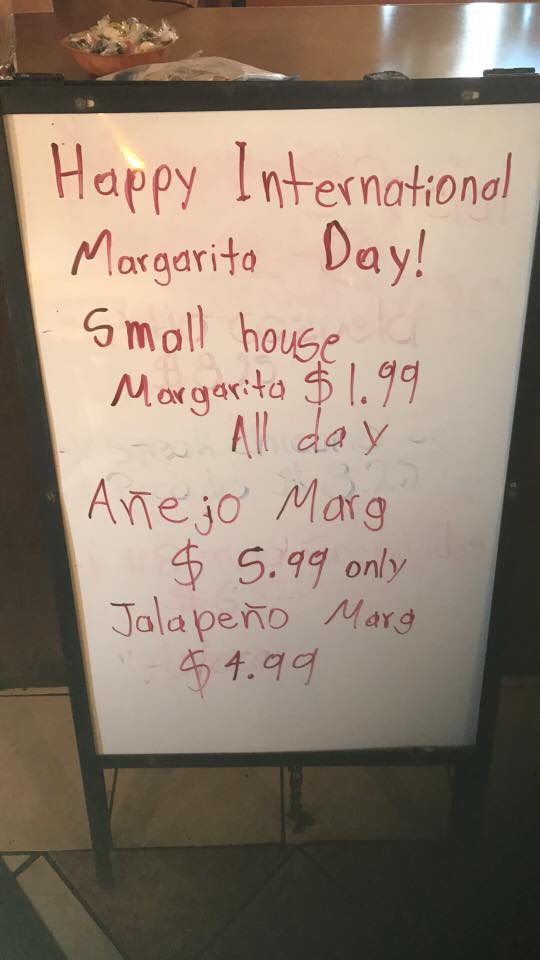 Happy International
Margarita Day!
Small house
Margarita $1.99
All day
Añejo Marg
$ 5.99 only
Jalapeño Marg
$4.99